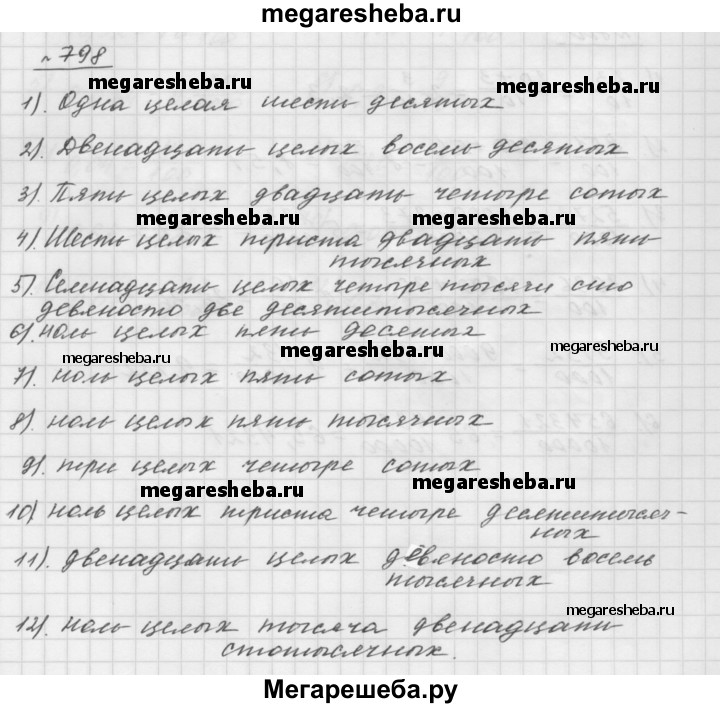 megaresheba.ru
№ 798
megaresheba.ru
megaresheba.ru
1). Одна целая шесть десятых
2). Двенадцать целых восемь десятых
3). Пять целых двадцать четыре сотых
megaresheba.ru
megaresheba.ru
4). Шесть целых триста двадцать пять
тысячных
5). Семнадцать целых четыре тысячи сто
девяносто две десятитысячных
6). ноль целых пять десятых
megaresheba.ru
megaresheba.ru
megaresheba.ru
7). ноль целых пять сотых
8). ноль целых пять тысячных
9). три целых четыре сотых
megaresheba.ru
megaresheba.ru
10) ноль целых триста четыре десятитысяч-
ных
11). двенадцать целых девяносто восемь
тысячных
megaresheba.ru
12). ноль целых тысяча двенадцать
стотысячных.
Мегарешеба.ру